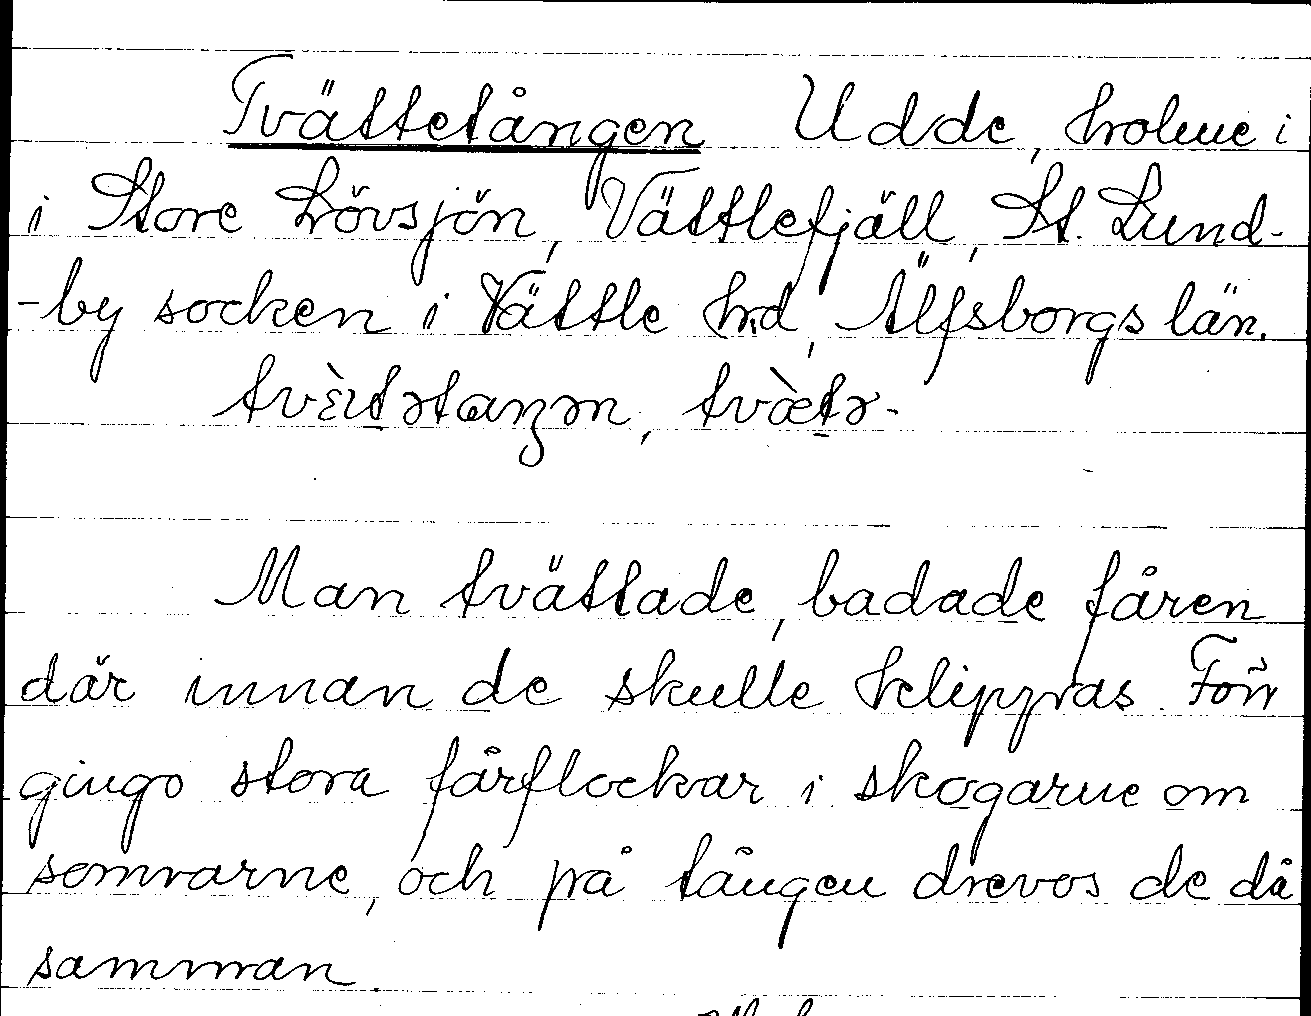 Tvättetången Udde, holme i
i Store Lövsjön, Vättlefjäll, St. Lund-
-by socken i Vättle hd, Älfsborgs län.
Man tvättade, badade fåren
där innan de skulle klippas. Förr
gingo stora fårflockar i skogarne om
somrarne, och på tången drevos de då
samman.